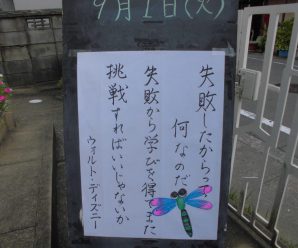 9月1日(火)
失敗したからって
何なのだ
失敗から学びを得てまた
挑戦すればいいじゃないか
ウォルト・ディズニー